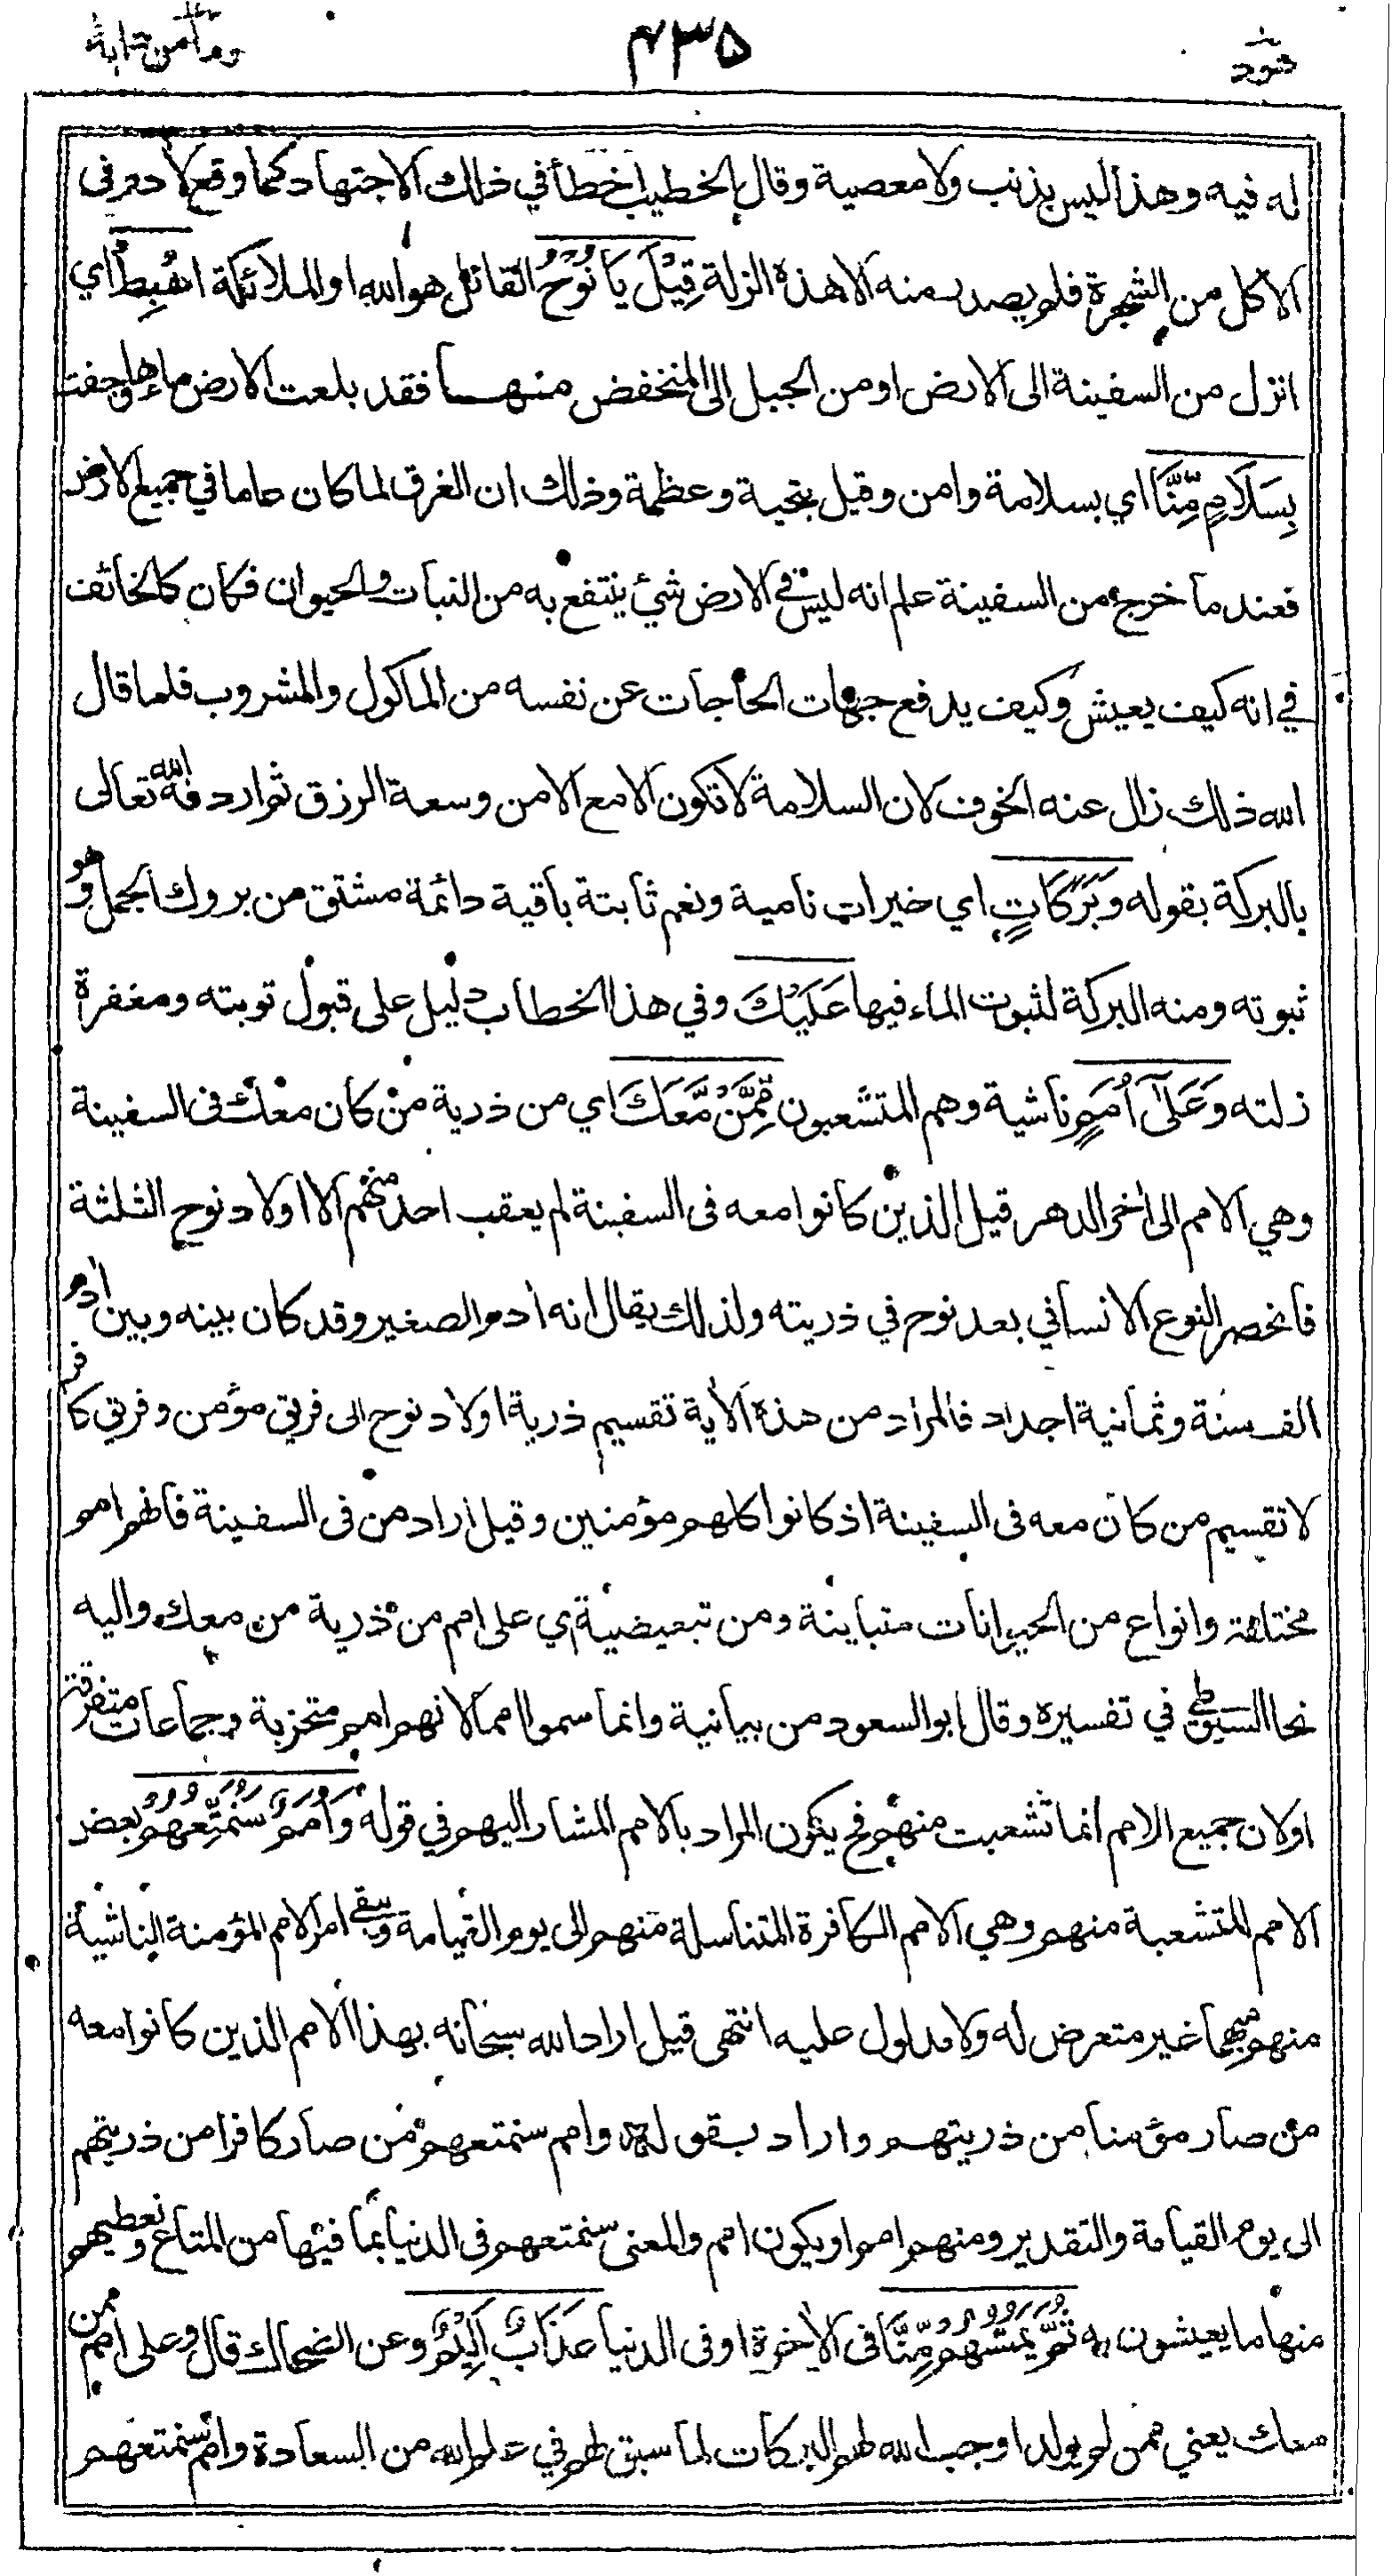 هود
۴۳۵
وما من دابة
له فيه وهذا ليس بذنب ولا معصية وقال الخطيب اخطأ في ذلك الاجتهاد كما وقع لادم في
الاكل من الشجرة فلم يصدر منه الا هذه الزلة قِيْلَ يَا نُوْحُ القائل هو الله او الملائكة اهْبِطْ اي
انزل من السفينة الى الارض او من الجبل الى المنخفض منها فقد بلعت الارض ماءها وجفت
بِسَلَامٍ مِّنَّا اي بسلامة وامن وقيل بتحية وعظمة وذلك ان الغرق لما كان عاما في جميع الارض
فعند ما خرج من السفينة علم انه ليس في الارض شيء ينتفع به من النبات والحيوان فكان كالخائف
في انه كيف يعيش وكيف يدفع جهات الحاجات عن نفسه من الماكول والمشروب فلما قال
الله ذلك زال عنه الخوف لان السلامة لا تكون الا مع الامن وسعة الرزق ثم اردفه الله تعالى
بالبركة بقوله وَبَرَكَاتٍ اي خيرات نامية ونعم ثابتة باقية دائمة مشتق من بروك الجمل وهو
ثبوته ومنه البركة لثبوت الماء فيها عَلَيْكَ وفي هذا الخطاب دليل على قبول توبته ومغفرة
زلته وَعَلَىٰٓ اُمَمٍ ناشية وهم المتشعبون مِّمَّنْ مَّعَكَ اي من ذرية من كان معك فى السفينة
وهي الامم الى اخر الدهر قيل الذين كانوا معه فى السفينة لم يعقب احد منهم الا اولاد نوح الثلثة
فانحصر النوع الانساني بعد نوح في ذريته ولذلك يقال انه ادم الصغير وقد كان بينه وبين ادم
الف سنة وثمانية اجداد فالمراد من هذه الاية تقسيم ذرية اولاد نوح الى فريق مؤمن وفريق كافر
لا تقسيم من كان معه فى السفينة اذ كانوا كلهم مؤمنين وقيل اراد من فى السفينة فانهم امم
مختلفة وانواع من الحيوانات متباينة ومن تبعيضية اي على امم من ذرية من معك واليه
نحا السيوطي في تفسيره وقال ابو السعود من بيانية وانما سموا امما لانهم امم متحزبة وجماعات متفرقة
او لان جميع الامم انما تشعبت منهم فح يكون المراد بالامم المشار اليهم في قوله وَاُمَمٌ سَنُمَتِّعُهُمْ بعض
الامم المتشعبة منهم وهي الامم الكافرة المتناسلة منهم الى يوم القيامة ويبقى امر الامم المؤمنة الناشية
منهم مبهما غير متعرض له ولا مدلول عليه انتهى قيل اراد الله سبحانه بهذا الامم الذين كانوا معه
من صار مؤمنا من ذريتهم واراد بقوله وامم سنمتعهم من صار كافرا من ذريتهم
الى يوم القيامة والتقدير ومنهم امم او يكون امم والمعنى سنمتعهم فى الدنيا بما فيها من المتاع ونعطيهم
منها ما يعيشون به ثُمَّ يَمَسُّهُمْ مِّنَّا فى الاخرة او فى الدنيا عَذَابٌ اَلِيْمٌ وعن الضحاك قال وعلى امم ممن
معك يعني ممن لم يولد اوجب الله لهم البركات لما سبق لهم في علم الله من السعادة وامم سنمتعهم